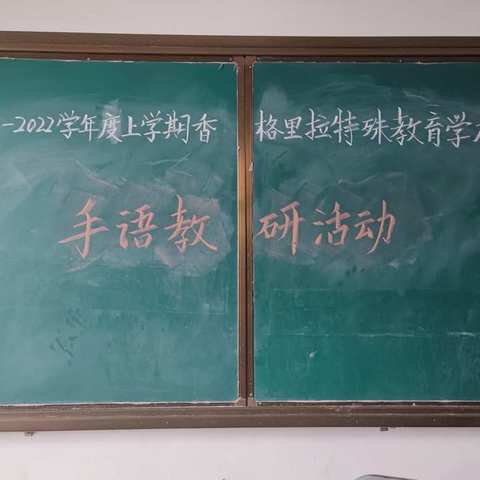 -2022学年度上学期香格里拉特殊教育学
手语教研活动